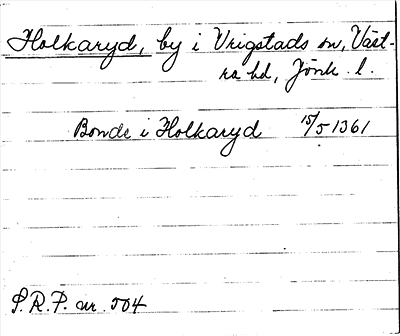 Holkaryd, by i Vrigstads sn, Väst-
ra hd, Jönk. l.
Bonde i Holkaryd 15/5 1361
S.R.P. nr. 504